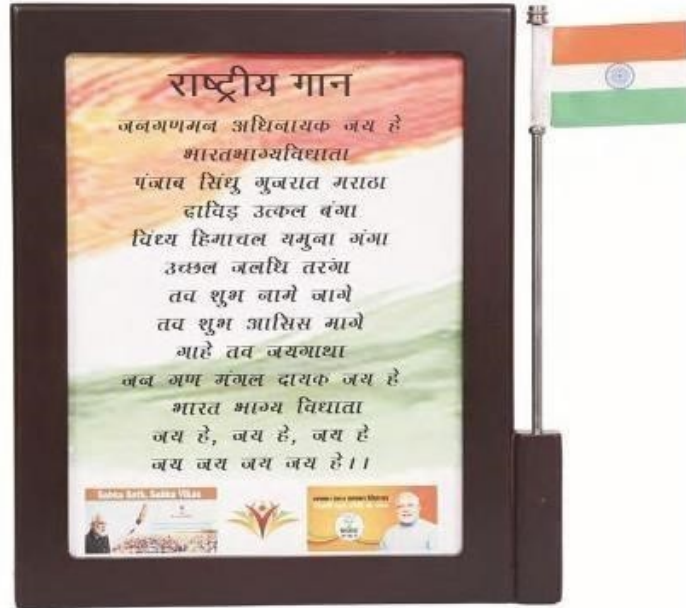 राष्ट्रीय गान
जनगणमन अधिनायक जय हे
भारतभाग्यविधाता
पंजाब सिंधु गुजरात मराठा
दाविड़ उत्कल बंगा
विंध्य हिमाचल यमुना गंगा
उच्छल जलधि तरंगा
तव शुभ नामे जागे
तव शुभ आसिस मागे
गाहे तव जयगाथा
जन गण मंगल दायक जय हे
भारत भाग्य विधाता
जय हे, जय हे, जय हे
जय जय जय जय हे।।
Sabka Sath, Sabka Vikas